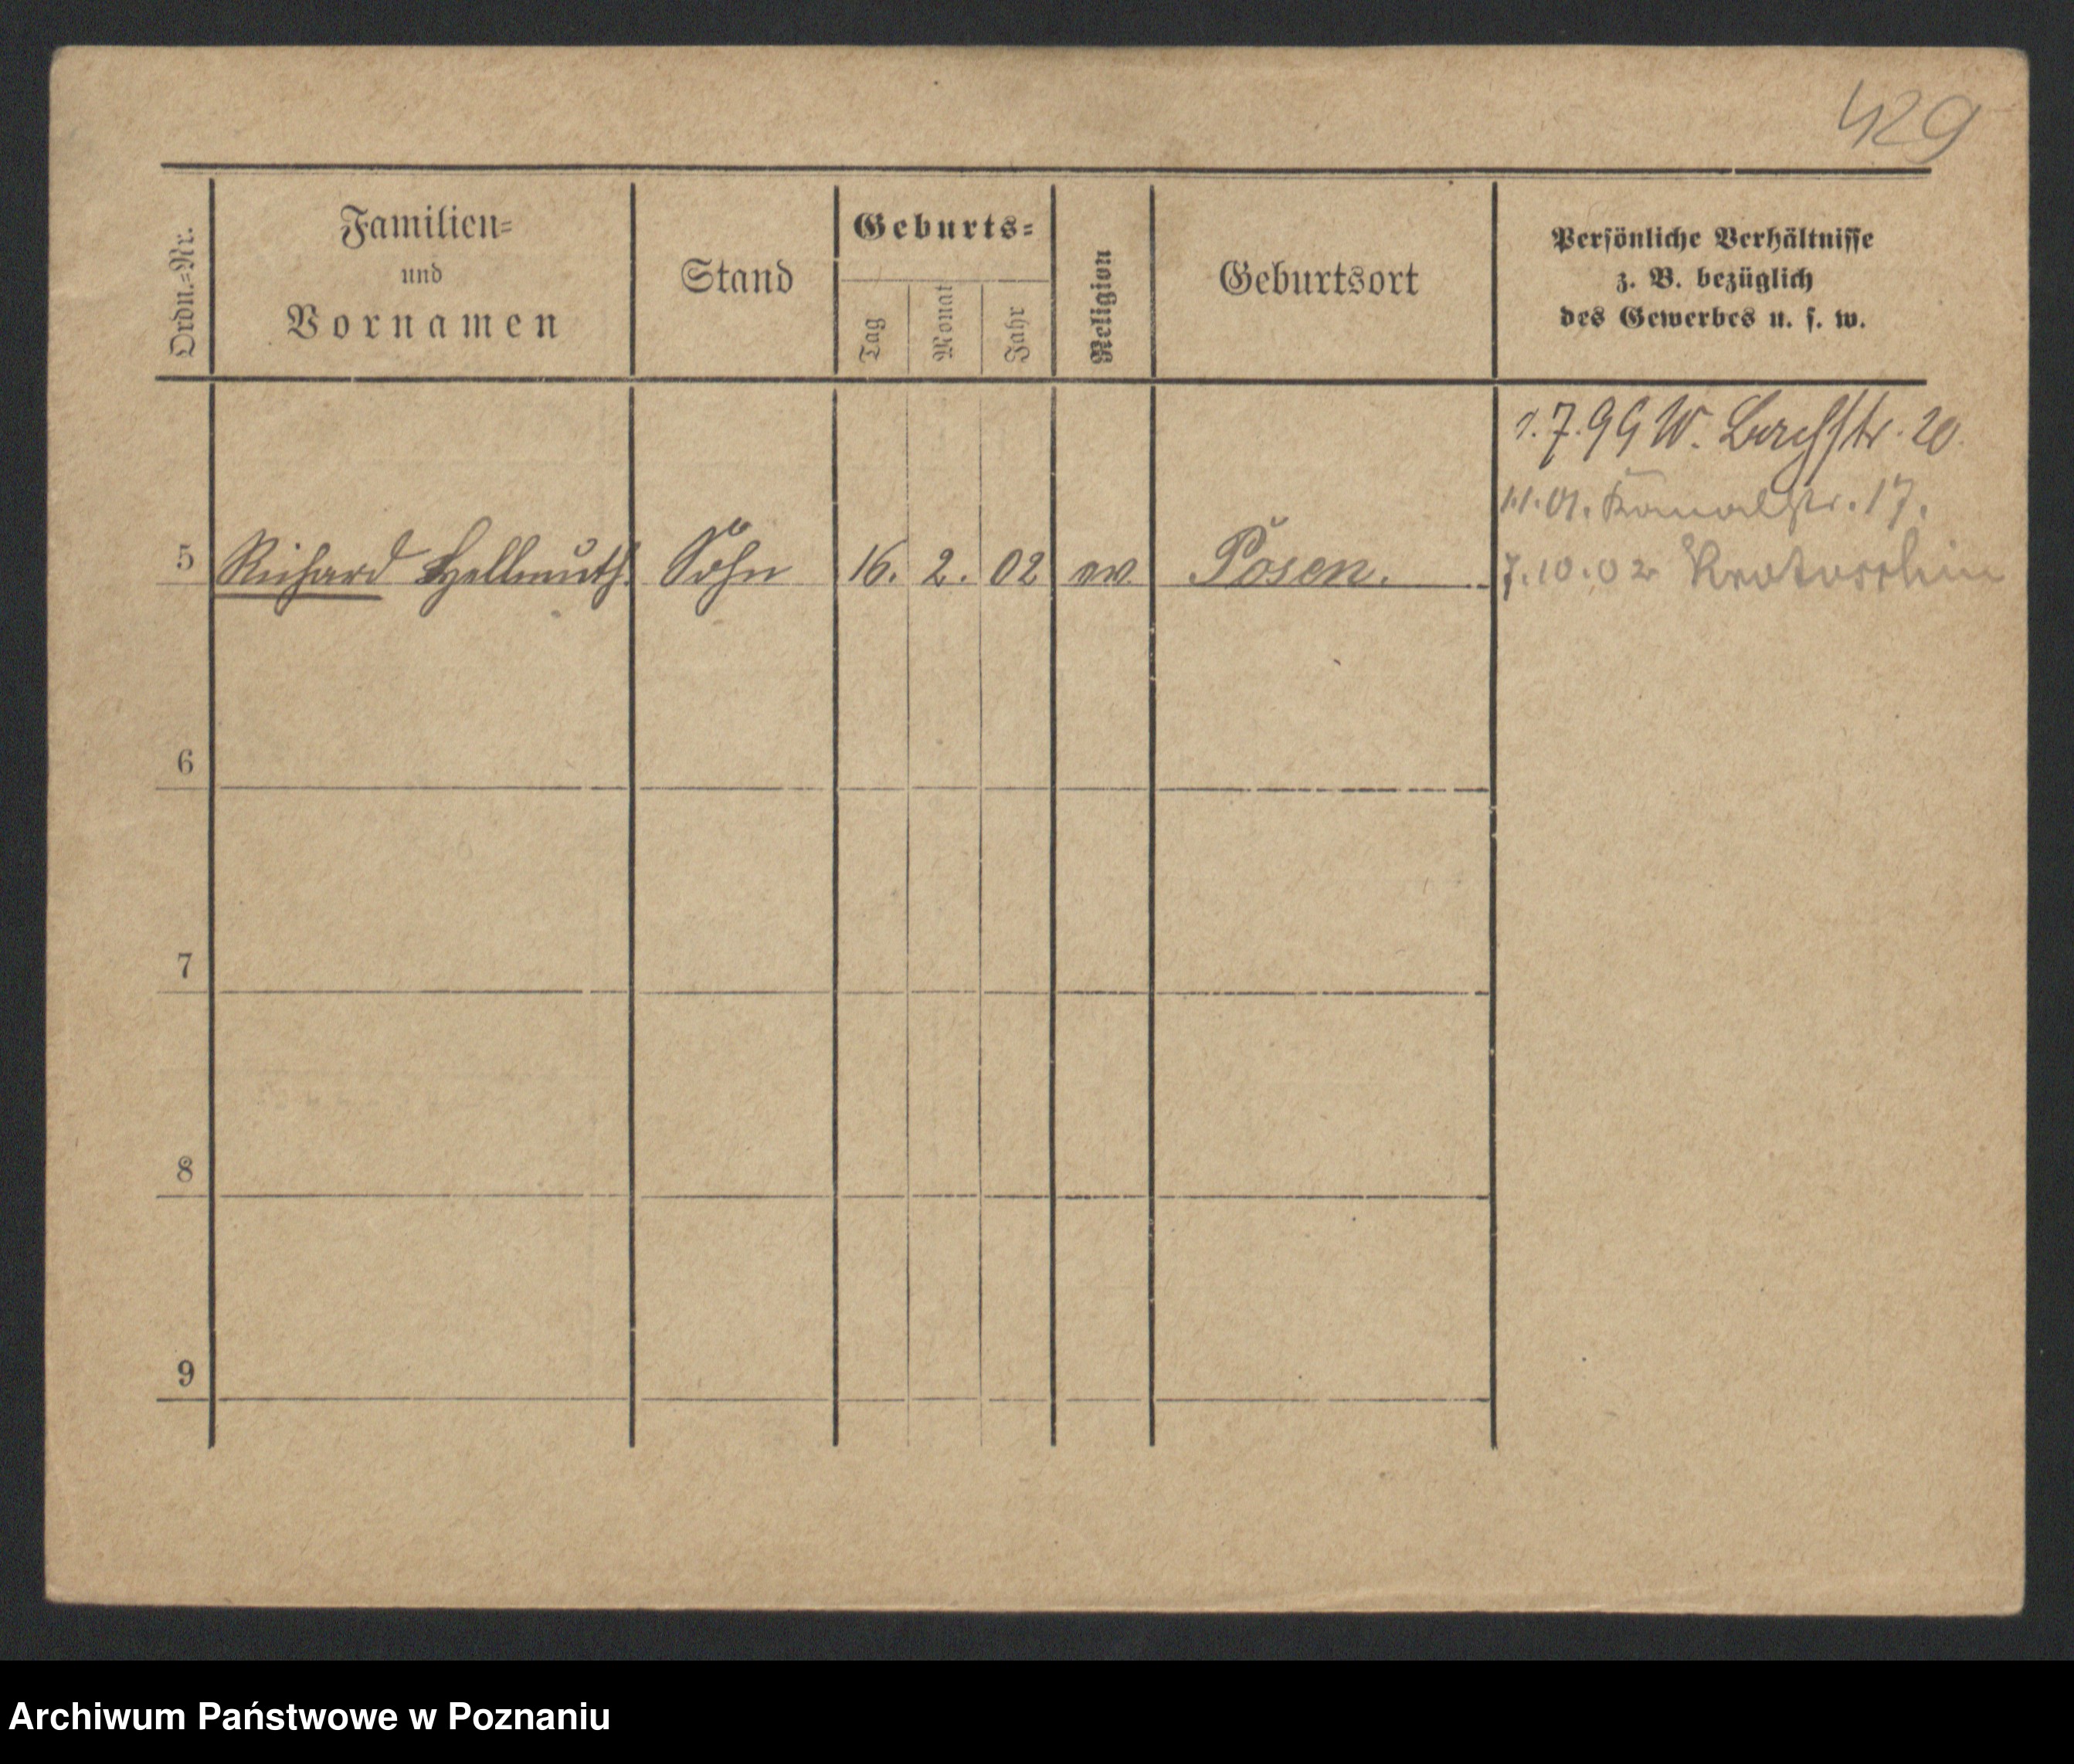 429
Ordn.=Nr.
Familien=
und
Vornamen
Stand
Geburts=
Tag
Monat
Jahr
Religion
Geburtsort
Persönliche Verhältnisse
z. B. bezüglich
des Gewerbes u. s. w.
1.7.99 W. 20.
1.1.01. Kanalstr. 17.
5 Richard Hellmuth. Sohn 16. 2. 02 ev. Posen.
7.10.02 Krotoschin
6
7
8
9
Archiwum Państwowe w Poznaniu